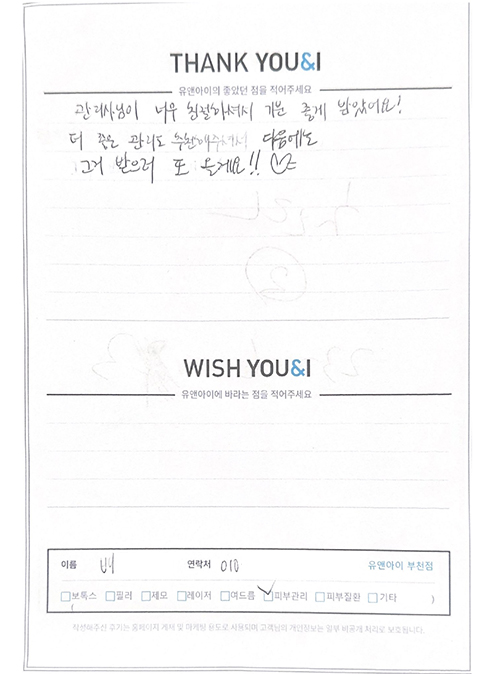 THANK YOU&I
유앤아이의 좋았던 점을 적어주세요
관리사님이 너무 친절하셔서 기분 좋게 받았어요!
더 좋은 관리도 추천해주셔서 다음에도
그거 받으러 또 올게요!!
WISH YOU&I
유앤아이에 바라는 점을 적어주세요
이름 연락처 010 유앤아이 부천점
보톡스 필러 제모 레이저 여드름 피부관리 피부질환 기타 )
작성해주신 후기는 홈페이지 게재 및 마케팅 용도로 사용되며 고객님의 개인정보는 일부 비공개 처리로 보호됩니다.